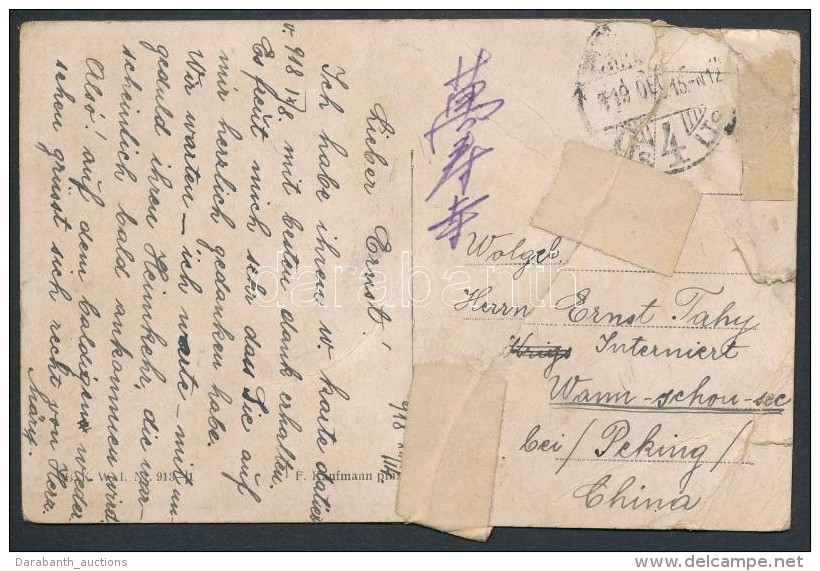 Lieber Ernst!
Ich habe ihren w. karte datiert
v. 918 17/6. mit besten dank erhalten.
Es freut mich sehr dass Sie auf
mir herrlich gedanken habe.
Wir warten – ich warte – mit un-
geduld ihren Heimkehr, die war-
scheinlich bald ankommen wird.
Also! auf dem baldigen wieder
schen grüsst sich recht von Herz
Márg.
918
萬寿寺
4
Wolgeb.
Herrn Ernst Tahy
Krigs Interniert
Wann-schou-sec
bei / Peking /
China
F. Kaufmann
W. I. N. 913
darabanth
Darabanth_auctions
delcampe.net